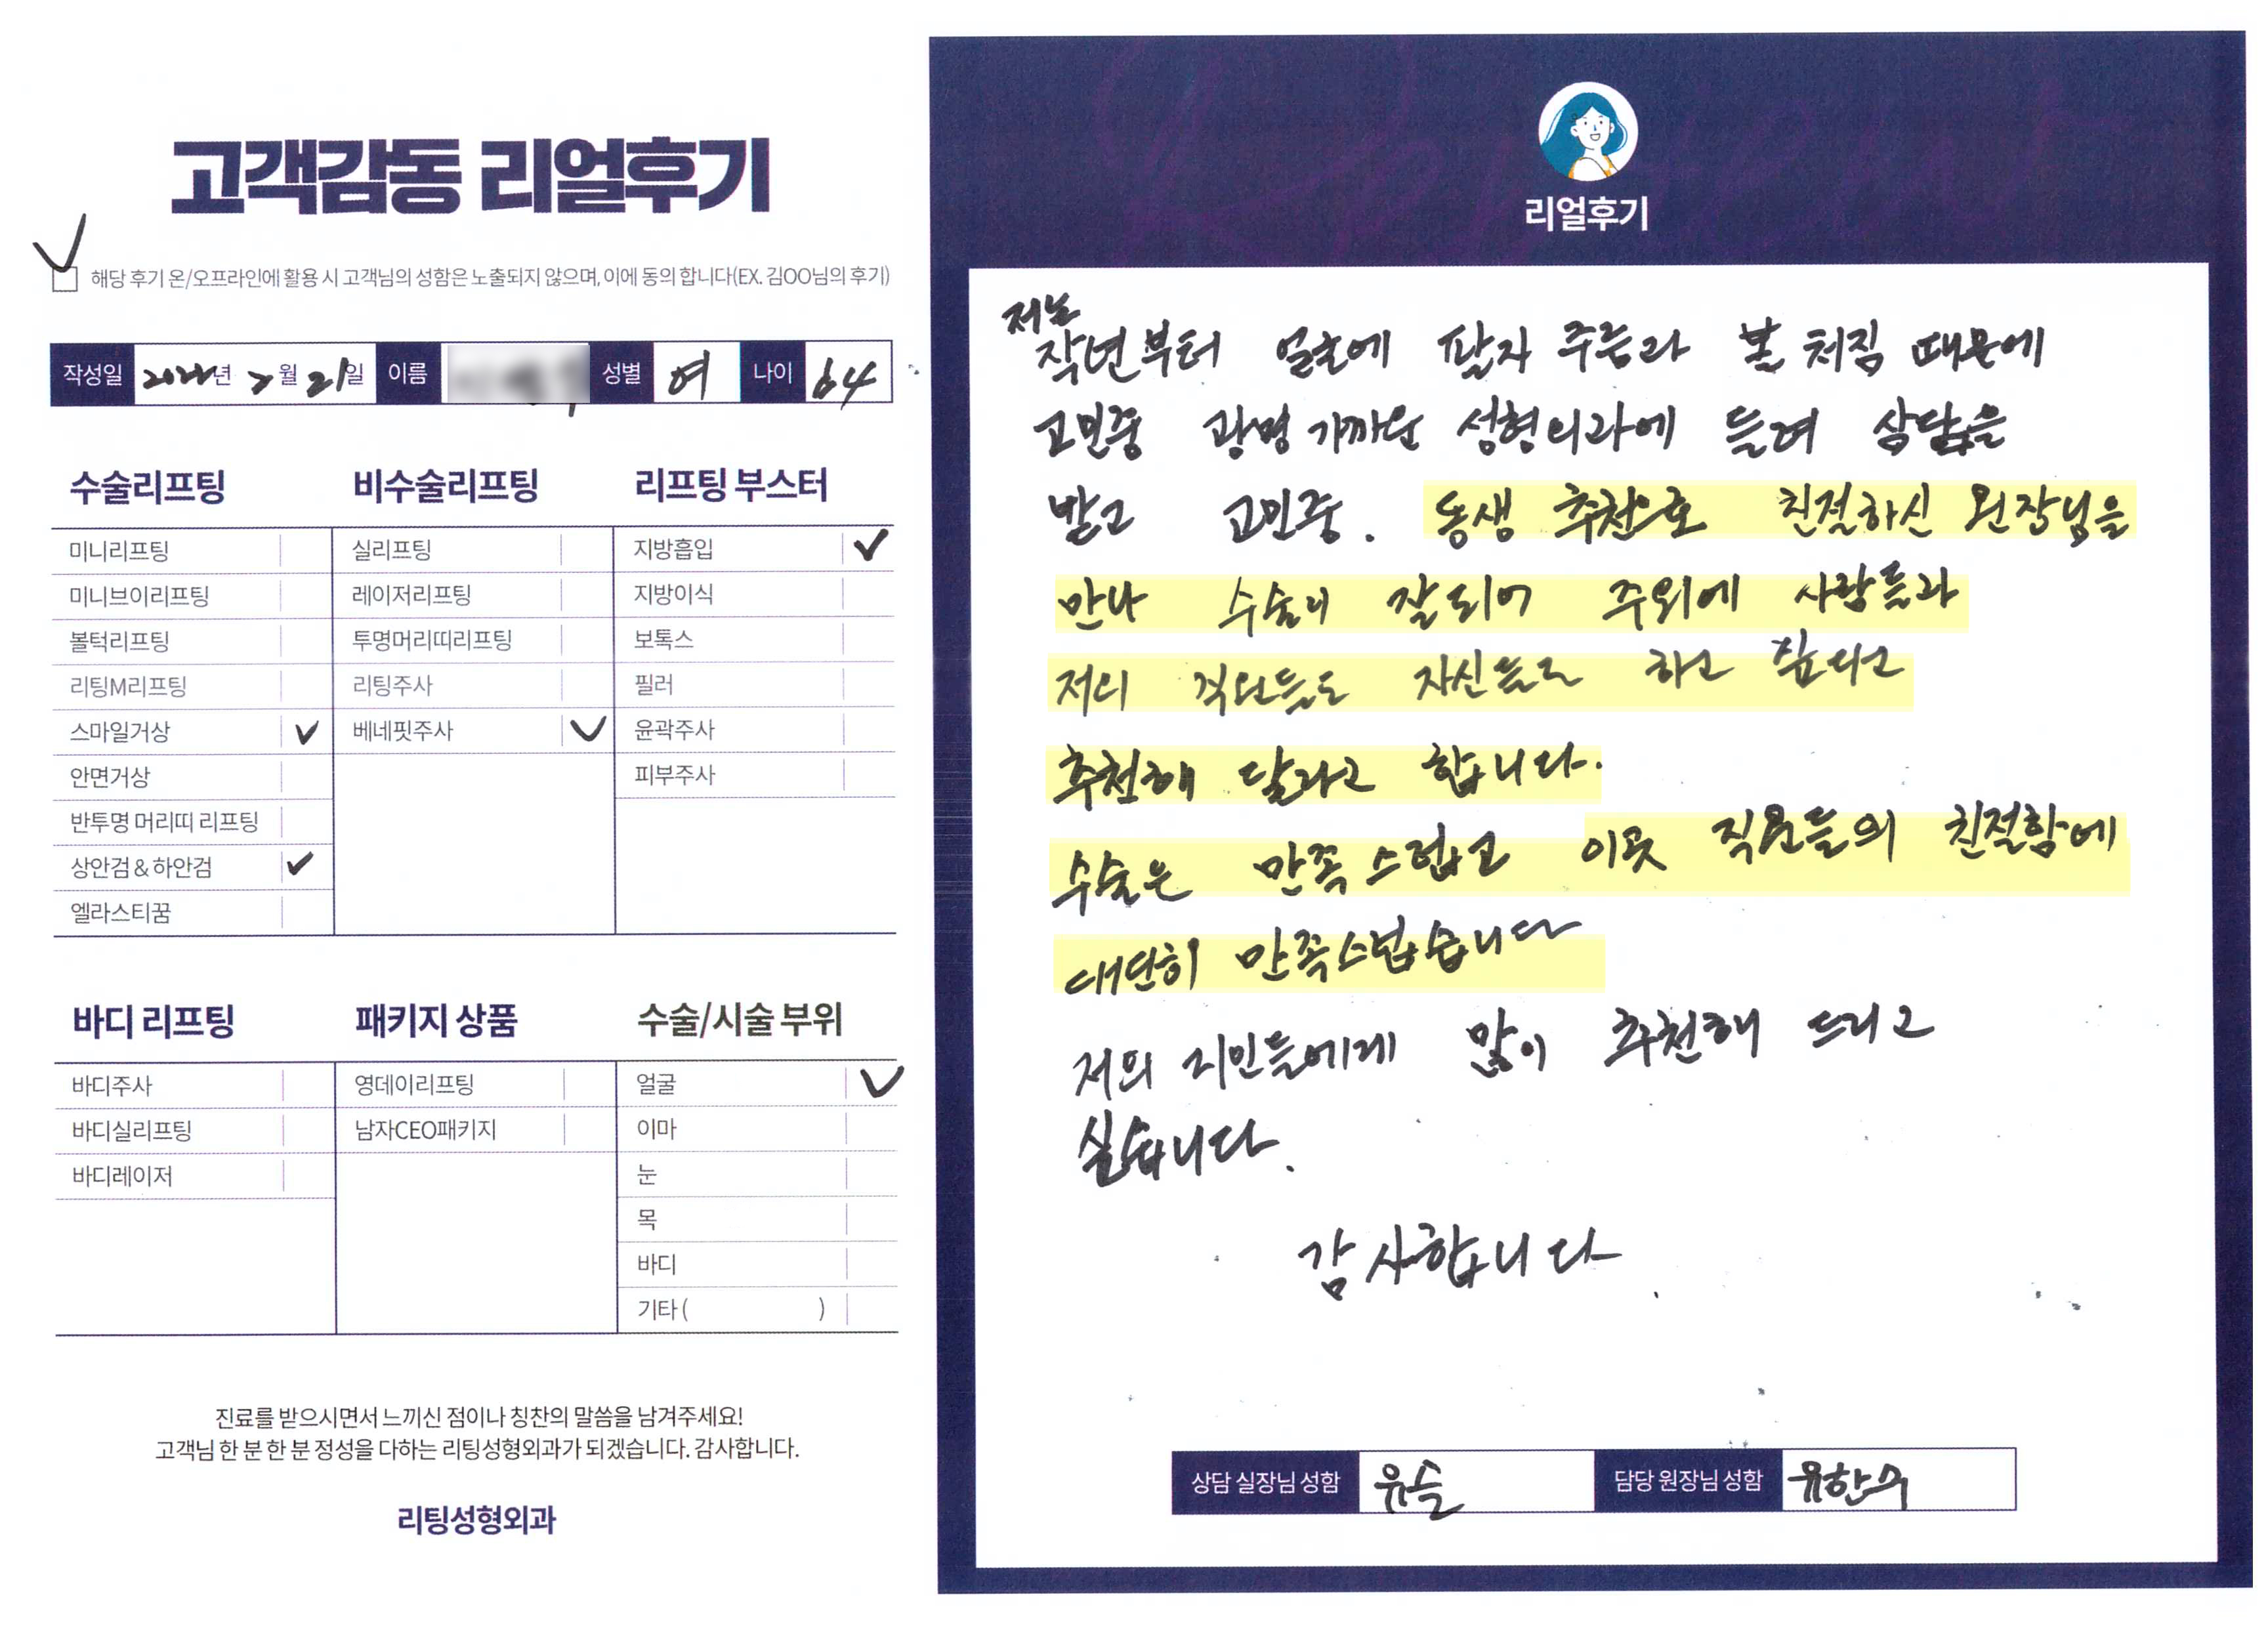 고객감동 리얼후기
해당 후기 온/오프라인에 활용 시 고객님의 성함은 노출되지 않으며, 이에 동의 합니다(EX. 김OO님의 후기)
작성일 2022년 7월 21일 이름 성별 여 나이 64
수술리프팅
미니리프팅
미니브이리프팅
볼턱리프팅
리팅M리프팅
스마일거상 ✓
안면거상
반투명 머리띠 리프팅
상안검 & 하안검 ✓
엘라스티꿈
비수술리프팅
실리프팅
레이저리프팅
투명머리띠리프팅
리팅주사
베네핏주사 ✓
리프팅 부스터
지방흡입 ✓
지방이식
보톡스
필러
윤곽주사
피부주사
바디 리프팅
바디주사
바디실리프팅
바디레이저
패키지 상품
영데이리프팅
남자CEO패키지
수술/시술 부위
얼굴 ✓
이마
눈
목
바디
기타 ( )
진료를 받으시면서 느끼신 점이나 칭찬의 말씀을 남겨주세요!
고객님 한 분 한 분 정성을 다하는 리팅성형외과가 되겠습니다. 감사합니다.
리팅성형외과
리얼후기
저는
작년부터 얼굴에 팔자 주름과 볼 처짐 때문에
고민중 광명 가까운 성형외과에 들려 상담을
받고 고민중. 동생 추천으로 친절하신 원장님을
만나 수술이 잘되어 주위에 사람들과
저의 직원들도 자신들도 하고 싶다고
추천해 달라고 합니다.
수술은 만족스럽고 이곳 직원들의 친절함에
대단히 만족스럽습니다
저의 지인들에게 많이 추천해 드리고
싶습니다.
감사합니다.
상담 실장님 성함 유슬 담당 원장님 성함 유한수